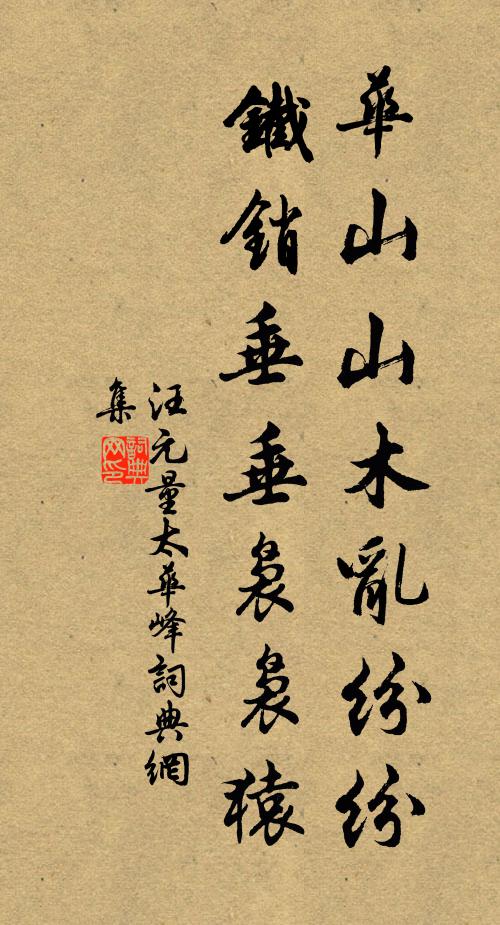 華山山木亂紛紛
鐵銷垂垂裊裊猿
汪元量太華峰詞典網
集
詞典網印